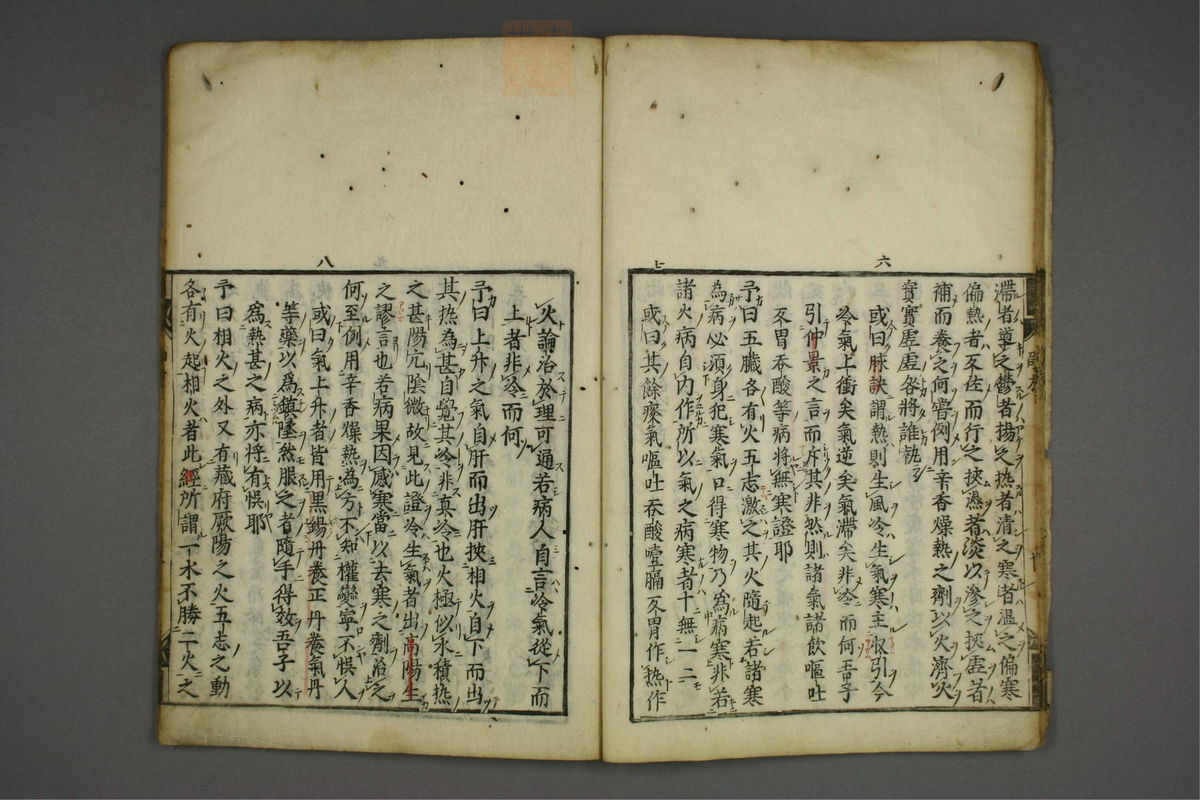 六
滯者導之鬱者揚之热者清之寒者温之偏寒
偏熱者反佐而行之挾濕者淡以滲之挾虛者
補而養之何嘗例用辛香燥熱之劑以火濟火
實實虛虛咎將誰執
或曰脉訣謂熱則生風冷生氣寒主收引今
冷氣上衝矣氣逆矣氣滯矣非冷而何吾子
引仲景之言而斥其非然則諸氣諸飲嘔吐
反胃吞酸等病將無寒證耶
七
予曰五臟各有火五志激之其火隨起若諸寒
為病必須身犯寒氣口得寒物乃為病寒非若
諸火病自内作所以氣之病寒者十無一二
或曰其餘痰氣嘔吐吞酸噎膈反胃作热作
火論治於理可通若病人自言冷氣從下而
上者非冷而何
八
予曰上升之氣自肝而出肝挾相火自下而出
其热為甚自覺其冷非真冷也火極似水積热
之甚陽亢陰微故見此證冷生氣者出高陽生
之謬言也若病果因感寒當以去寒之劑治之
何至例用辛香燥熱為方不知權變寧不悮人
或曰氣上升者皆用黑錫丹養正丹養氣丹
等藥以爲鎮墜然服之者隨手得效吾子以
爲熱甚之病亦將有悮耶
予曰相火之外又有藏府厥陽之火五志之動
各有火起相火者此經所謂一水不勝二火之